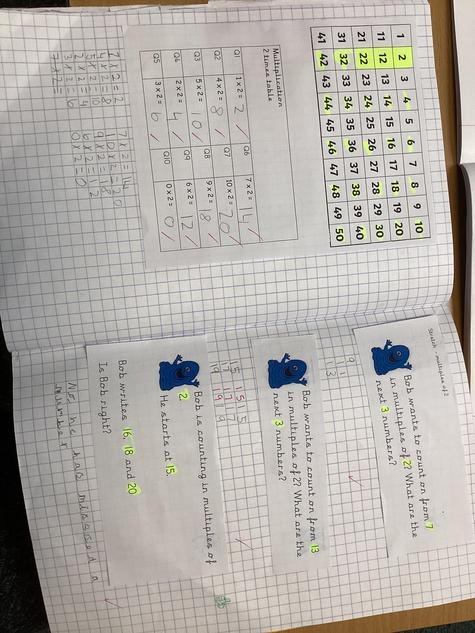 1 2 3 4 5 6 7 8 9 10
11 12 13 14 15 16 17 18 19 20
21 22 23 24 25 26 27 28 29 30
31 32 33 34 35 36 37 38 39 40
41 42 43 44 45 46 47 48 49 50
Multiplication
2 times table
Q1 1 x 2 = 2
Q2 4 x 2 = 8
Q3 5 x 2 = 10
Q4 2 x 2 = 4
Q5 3 x 2 = 6
Q6 7 x 2 = 14
Q7 10 x 2 = 20
Q8 9 x 2 = 8
Q9 6 x 2 = 2
Q10 0 x 2 = 0
4 x 2 = 8
5 x 2 = 10
2 x 2 = 4
3 x 2 = 6
7 x 2 =
7 x 2 = 14
10 x 2 = 20
0 x 2 = 0
Stretch - multiples of 2
Bob wants to count on from 7
in multiples of 2? What are the
next 3 numbers?
9
11
13
Bob wants to count on from 13
in multiples of 2? What are the
next 3 numbers?
15 15 15
17 17 17
19 19 19
Bob is counting in multiples of
2. He starts at 15.
Bob writes 16, 18 and 20
Is Bob right?
No, he has missed a
number